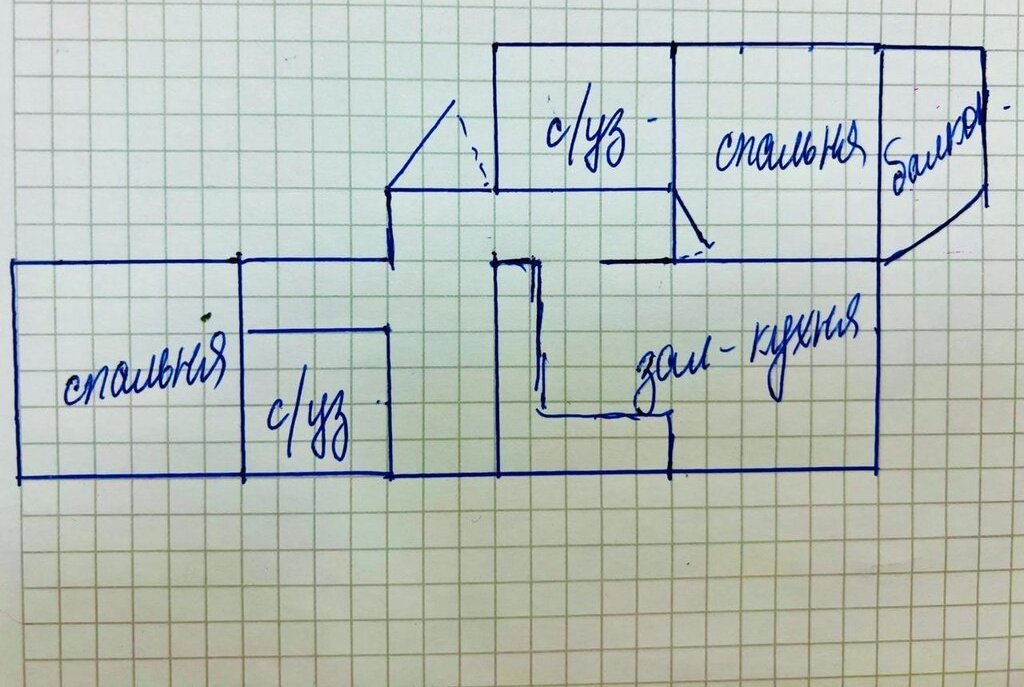 с/уз
спальня
балкон
спальня
с/уз
зал-кухня